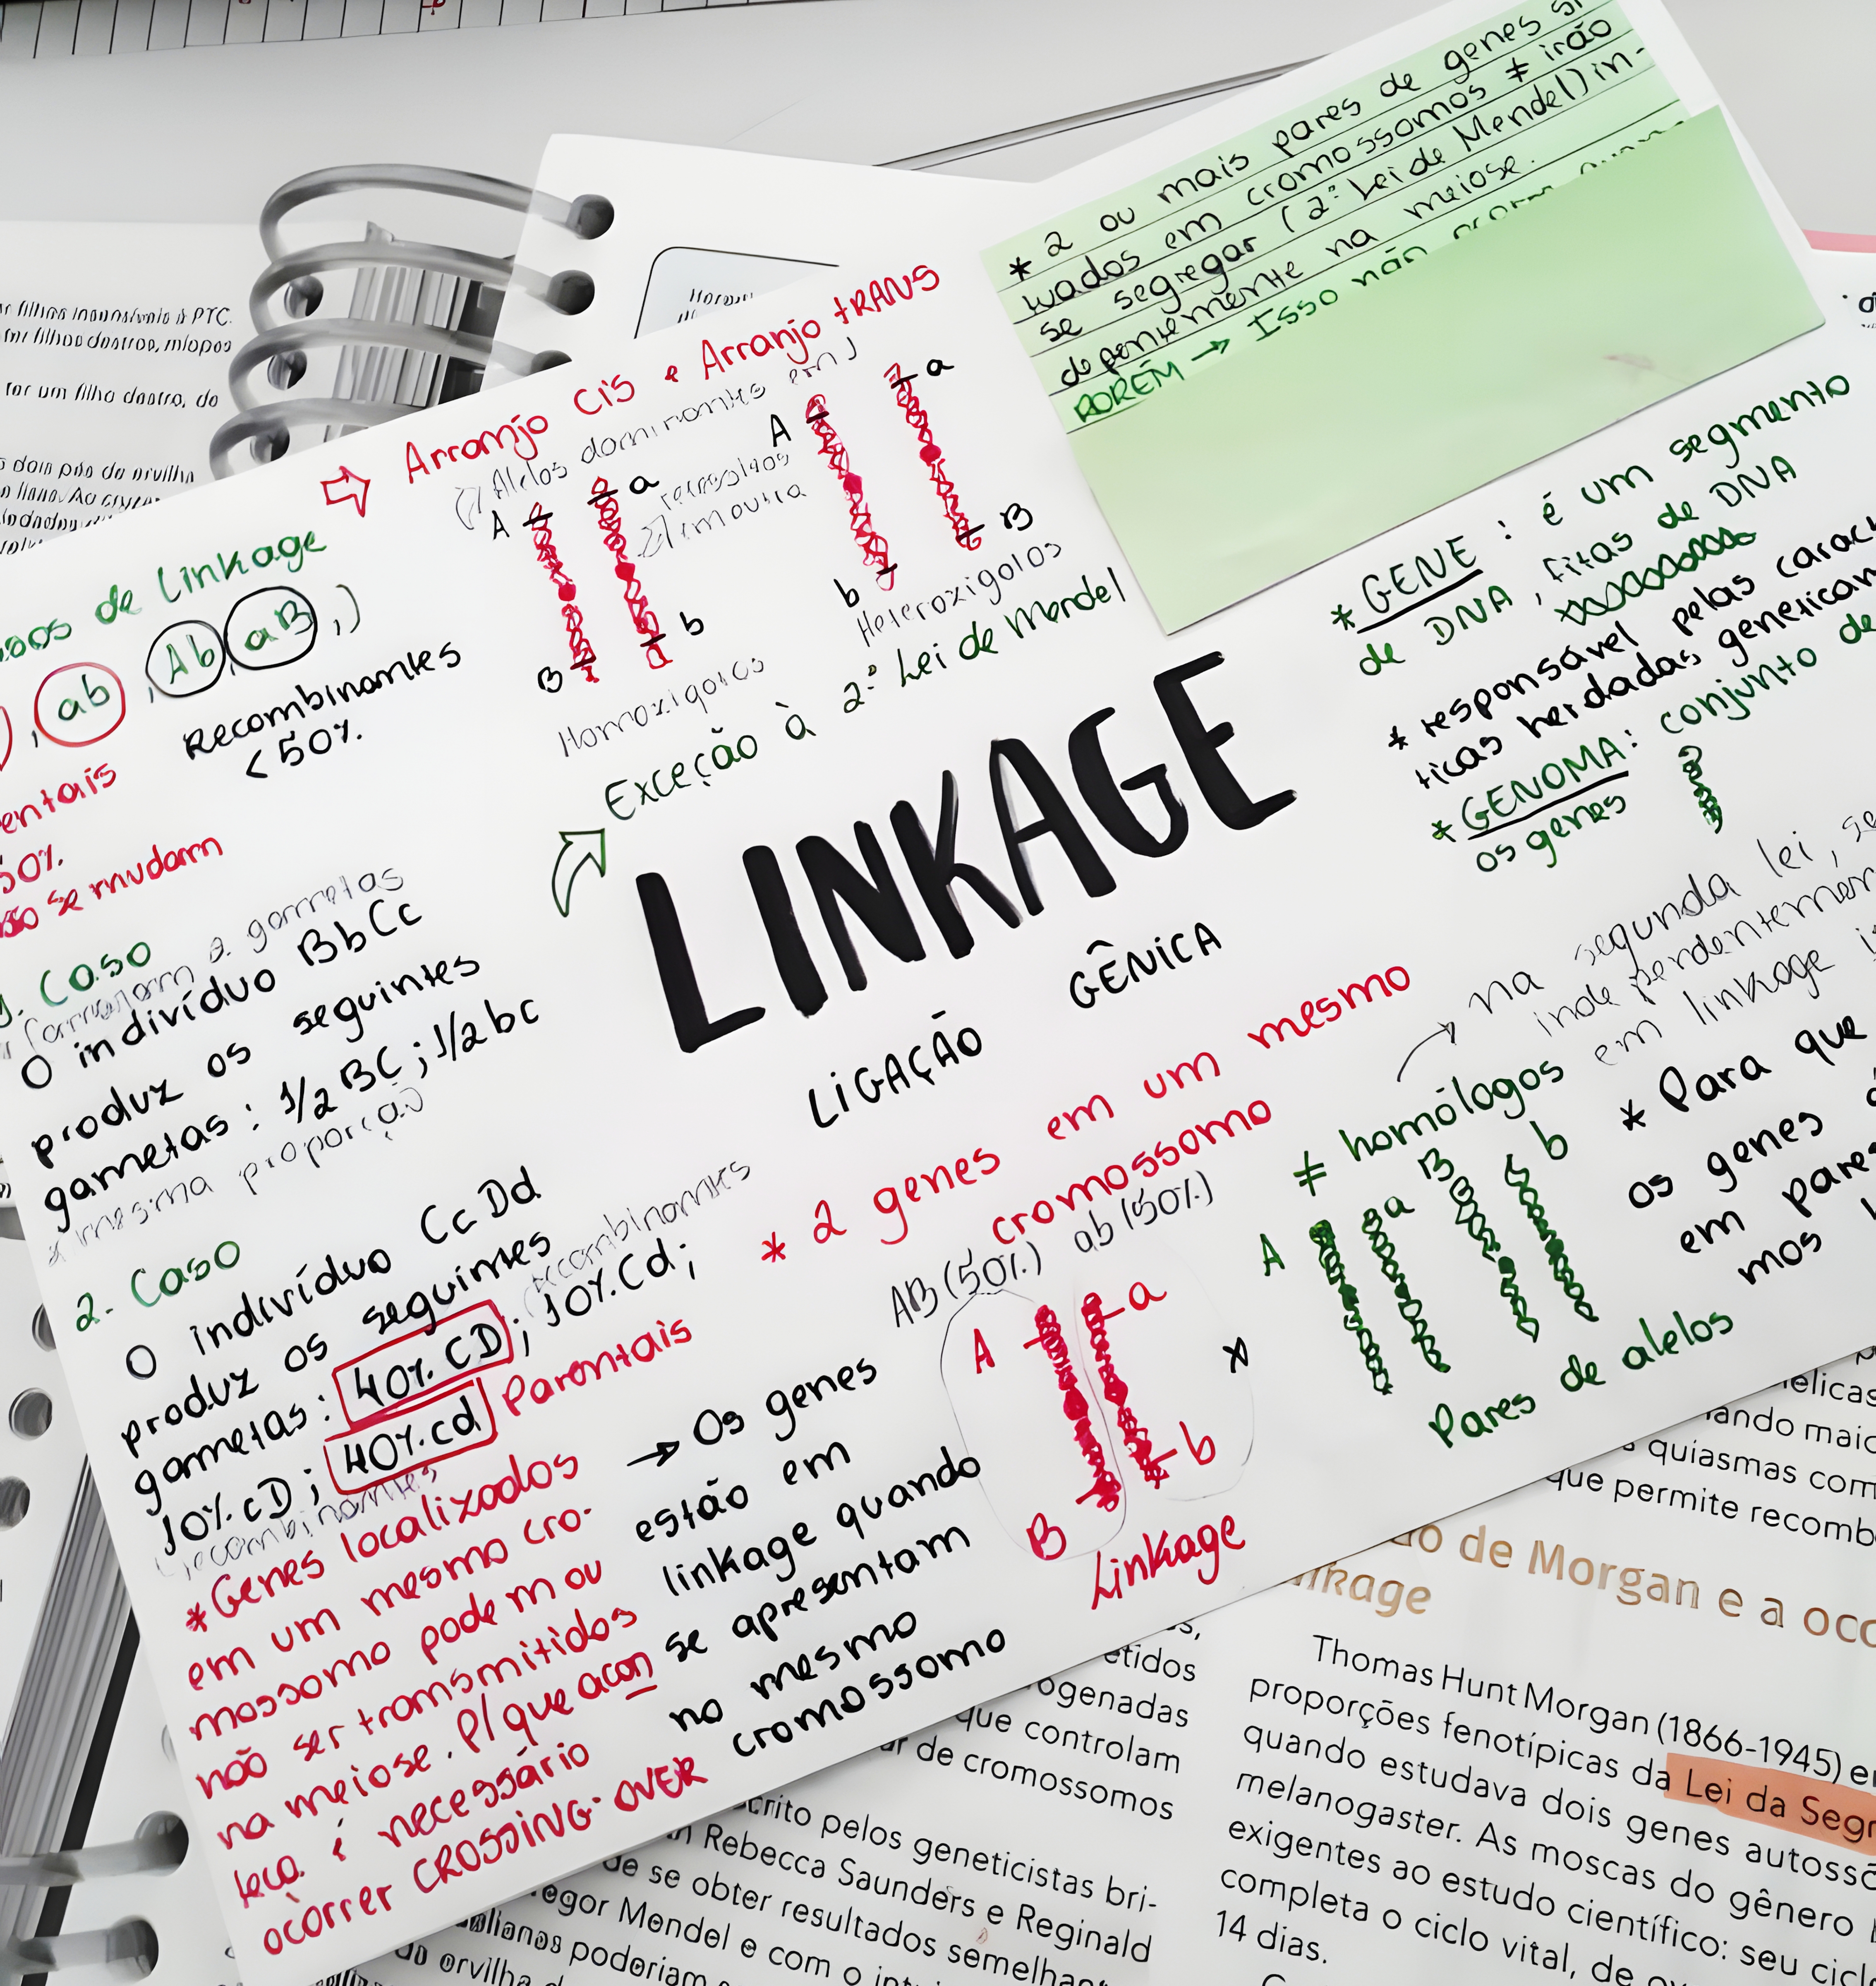 * 2 ou mais pares de genes si
tuados em cromossomos ≠ irão
se segregar (2ª Lei de Mendel) in-
dependente na meiose.
PORÉM → Isso não
⇨ Arranjo Cis e Arranjo tRANS
Alelos dominantes em
A a
recessivos
outra
B b
Homozigotos
A a
b B
Heterozigotos
de Linkage
, ab , Ab, aB ,)
Recombinantes
<50%.
entais
50%.
se mudam
Exceção à 2ª Lei de Mendel
LINKAGE
LIGAÇÃO GÊNICA
* GENE : é um segmento
de DNA, fitas de DNA
* responsável pelas carac
ticas herdadas genetican
* GENOMA: conjunto de
os genes
na segunda lei, se
em linkage
1. Caso
formam 2 gametas
O indivíduo BbCc
produz os seguintes
gametas : 1/2 BC ; 1/2 bc
* mesma proporção
2. Caso
O indivíduo CcDd
produz os seguintes
recombinantes
gametas : 40%.CD ; 10%.Cd ;
10%.cD ; 40%.cd Parentais
recombinantes
*Genes localizados
em um mesmo cro-
mossomo podem ou
não ser transmitidos
na meiose. P/ que acon
teça é necessário
ocorrer CROSSING-OVER
→ Os genes
estão em
linkage quando
se apresentam
no mesmo
cromossomo
* 2 genes em um mesmo
cromossomo
AB (50%.) ab (50%.)
A a
B b
Linkage
x
≠ homólogos
A a B b
Pares de alelos
* Para que
os genes
em pares
mos
r filhos insensíveis à PTC.
ter filhos destros, míopes
ter um filho destro, de
dois pés de ervilha
quiasmas com
que permite recomb
do de Morgan e a oco
linkage
Thomas Hunt Morgan (1866-1945) en
proporções fenotípicas da Lei da Segr
quando estudava dois genes autossô
melanogaster. As moscas do gênero
exigentes ao estudo científico: seu cicl
completa o ciclo vital, de
14 dias.
etidos
ogenadas
que controlam
ar de cromossomos
crito pelos geneticistas bri-
Rebecca Saunders e Reginald
de se obter resultados semelhan
egor Mendel e com o
lianos poderiam
ervilha